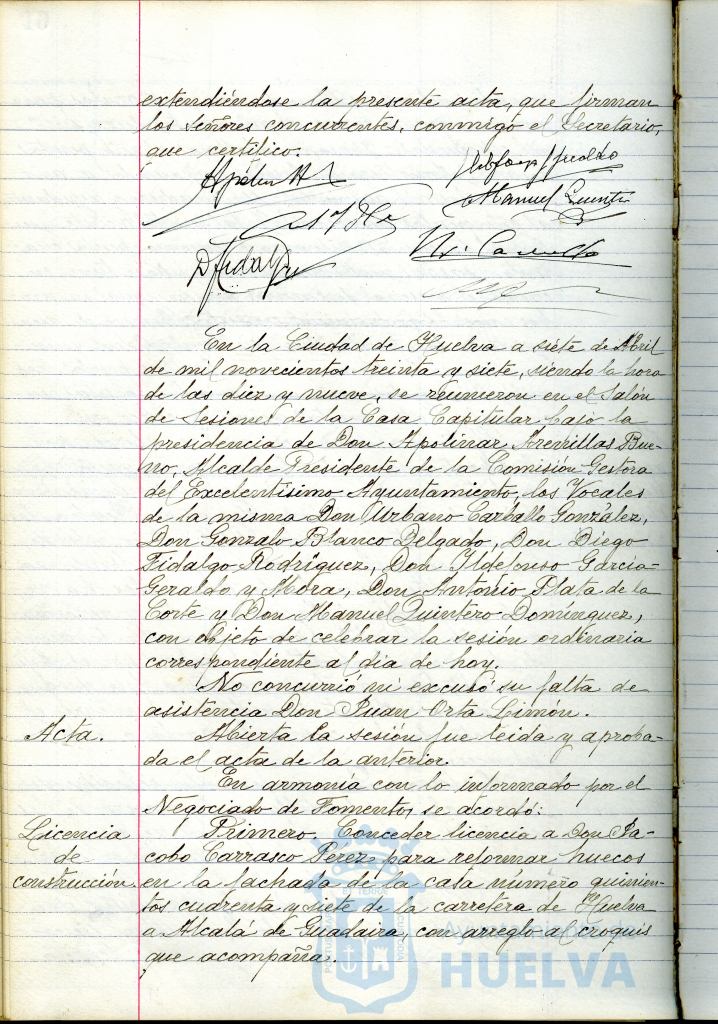 extendiéndose la presente acta, que firman
los Señores concurrentes, conmigo el Secretario,
que certifico.
Manuel Quintero
D Fidalgo
En la Ciudad de Huelva a siete de Abril
de mil novecientos treinta y siete, siendo la hora
de las diez y nueve, se reunieron en el Salón
de Sesiones de la Casa Capitular bajo la
presidencia de Don Apolinar Arenillas Bue-
no, Alcalde Presidente de la Comisión Gestora
del Excelentísimo Ayuntamiento, los Vocales
de la misma Don Urbano Carballo González,
Don Gonzalo Blanco Delgado, Don Diego
Fidalgo Rodríguez, Don Ildefonso García-
Geraldo y Mora, Don Antonio Plata de la
Corte y Don Manuel Quintero Domínguez,
con objeto de celebrar la sesión ordinaria
correspondiente al día de hoy.
No concurrió ni excusó su falta de
asistencia Don Juan Orta Limón.
Acta. Abierta la sesión fue leida y aproba-
da el acta de la anterior.
En armonía con lo informado por el
Negociado de Fomento, se acordó:
Licencia Primero. Conceder licencia a Don Ja-
de cobo Carrasco Pérez para reformar huecos
construcción. en la fachada de la casa número quinien-
tos cuarenta y siete de la carretera de Huelva
a Alcalá de Guadaira, con arreglo al croquis
que acompaña.
HUELVA